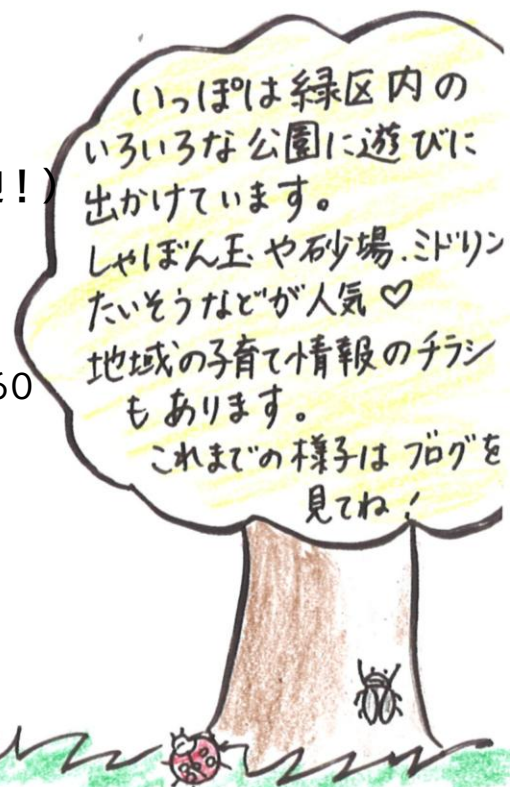 いっぽは緑区内の
いろいろな公園に遊びに
!)
出かけています。
しゃぼん玉や砂場、ミドリン
たいそうなどが人気♡
地域の子育て情報のチラシ
60
もあります。
これまでの様子はブログを
見てね!